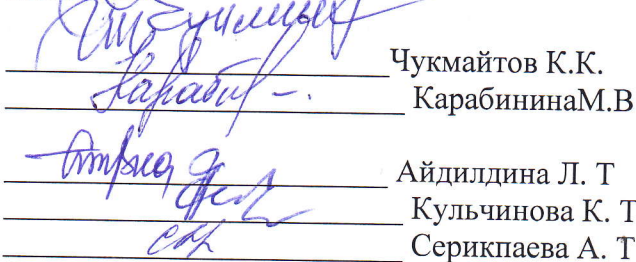 Чукмайтов К.К.
КарабининаМ.В
Айдилдина Л. Т
Кульчинова К. Т
Серикпаева А. Т